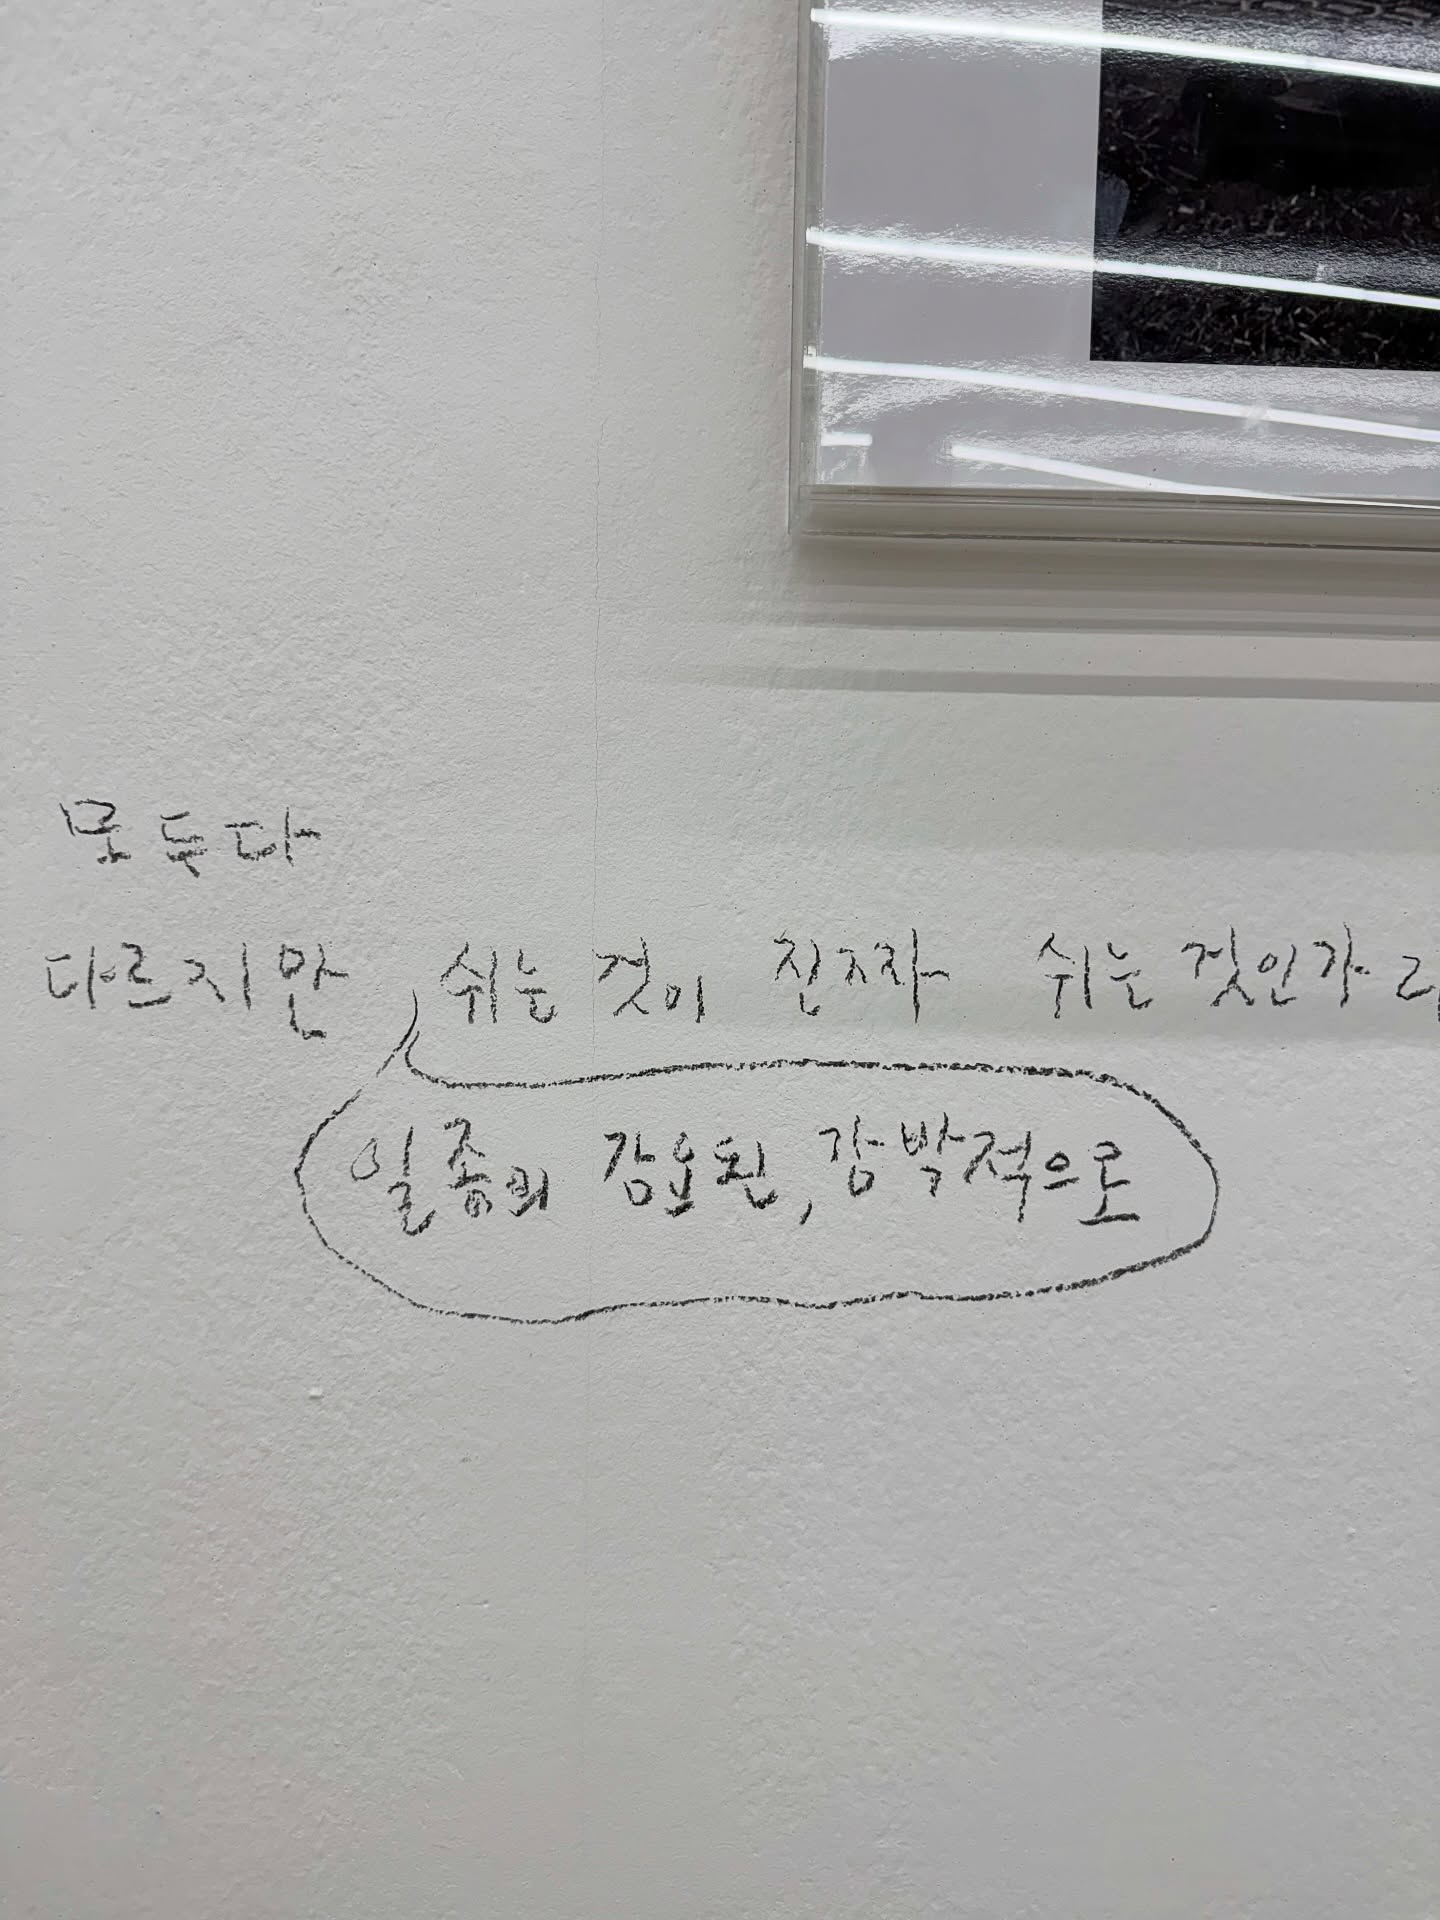 모두다
다르지만 쉬는 것이 진짜 쉬는 것인가
일종의 강요된, 강박적으로